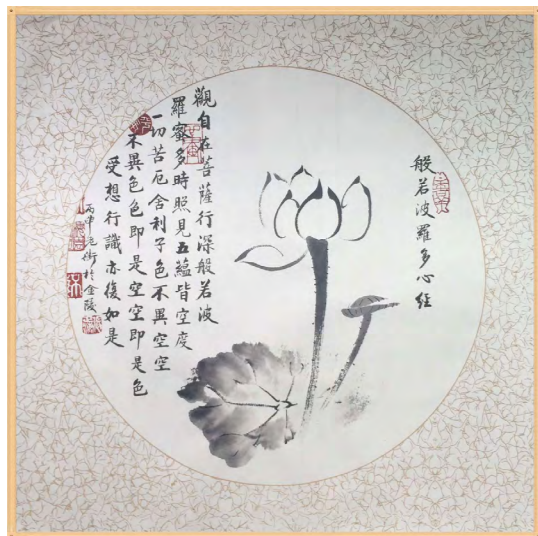 般若波羅多心经
觀自在菩薩行深般若波
羅蜜多時照見五蘊皆空度
一切苦厄舍利子色不異空空
不異色色即是空空即是色
受想行識亦復如是
丙申於金陵